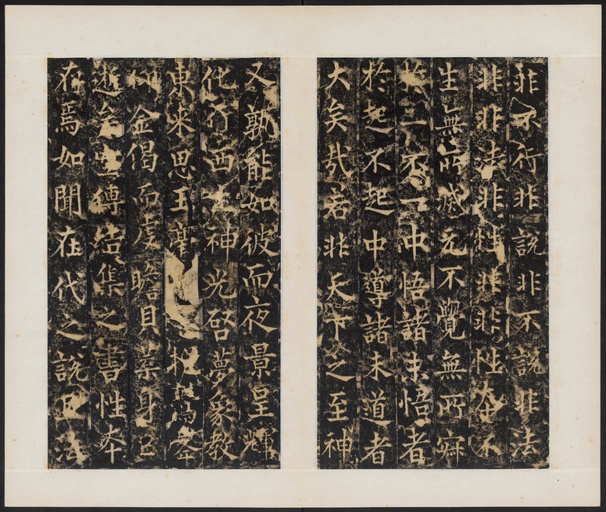 非不行非說非不說非法
非非法非性非非性本不
生無所滅元不覺無所
不中悟諸未悟者
於起不起中導諸未道者
大矣哉若非天下之至神
又孰能如彼而夜景呈輝
化行西神光啓夢象教
東來思王
金偈而虔瞻貝葉身已
逝矣空傳結集之書性本
存焉如聞在代之說正法